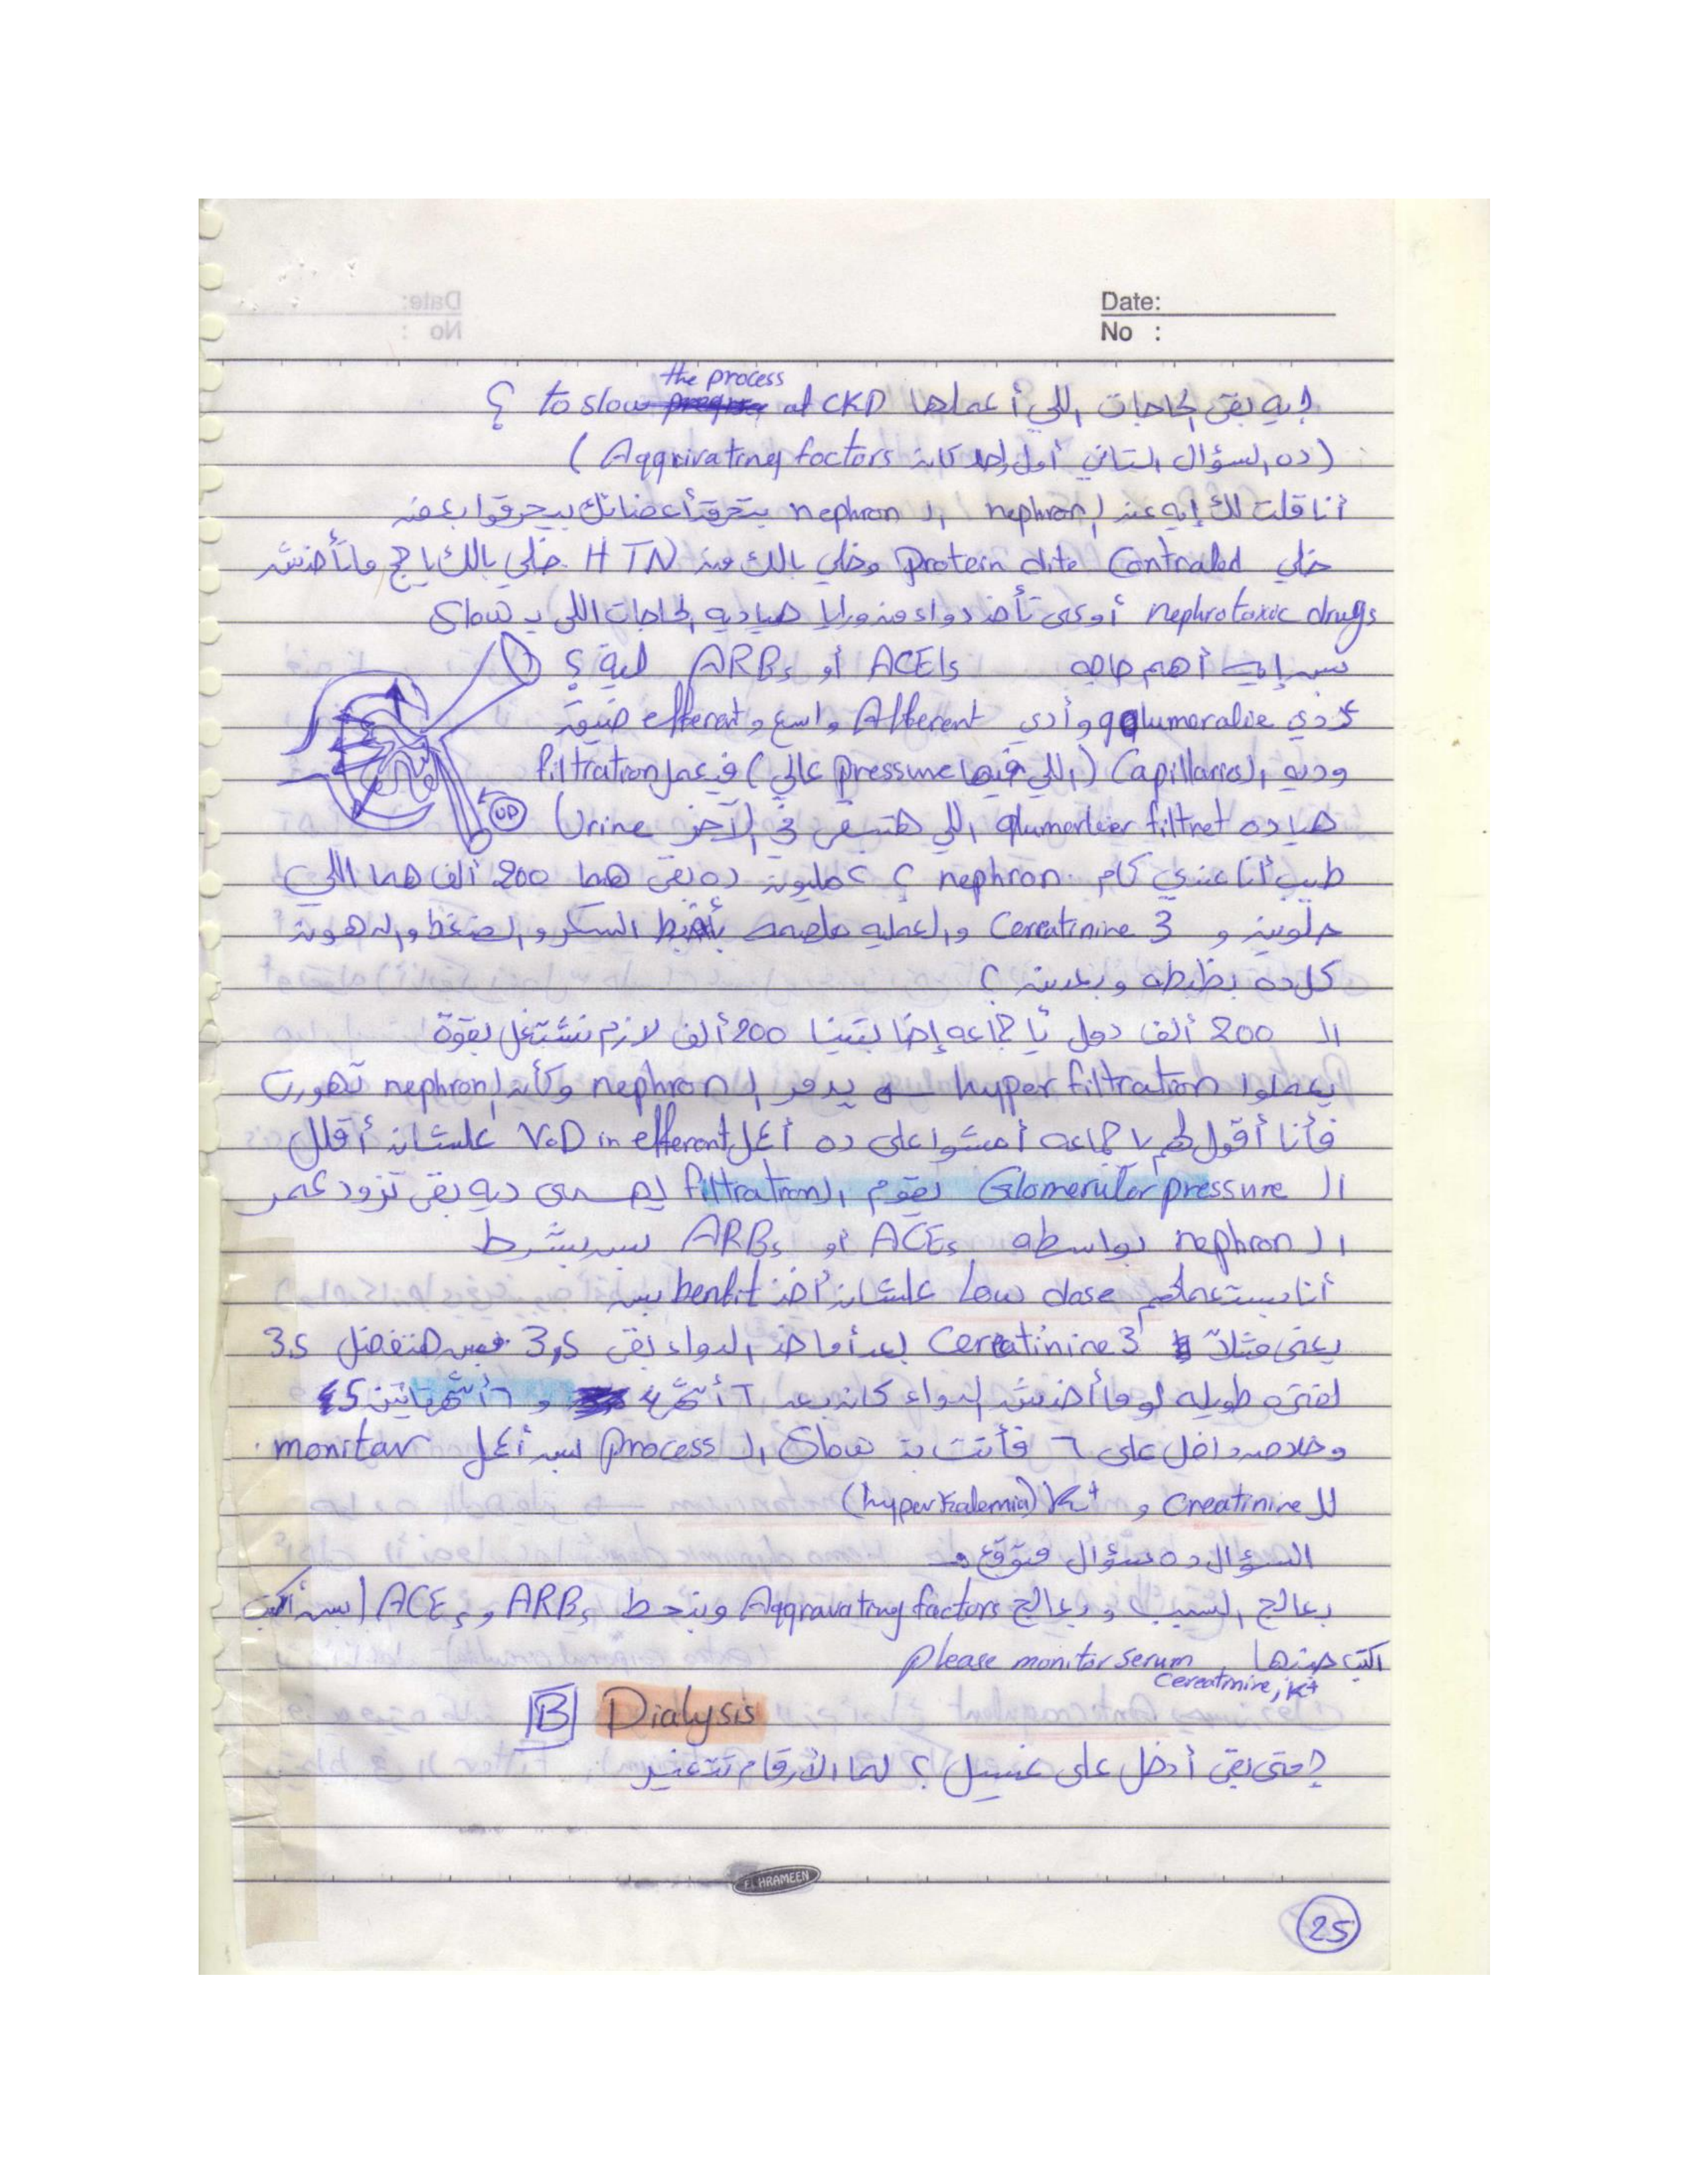 Date:
No :
إيه بقى الحاجات اللي أعملها to slow the process at CKD ؟
(ده السؤال التاني أول واحد كان Aggrivating factors )
أنا قلت لك إيه عند ال nephron ال nephron بتحرق أعضائك بيحرقوا بعض
خلي protein dite Contraled وخلي بالك من HTN خلي بالك يا حج ماتأخدش
nephrotoxic drugs أوعى تأخد دواء من ورايا هيا ديه الحاجات اللي بـ slow
بس إيه أهم حاجه ACEIs أو ARBs ليه ؟
دي glumoralie وأدي Afferent واسع و efferent ضيق
وديه ال Capillaries (اللي فيها pressure عالي) فيعمل filtration
هيا ده glumerleer filtret اللي هتبقى في الآخر Urine
OP
طيب أنا عندي كام nephron ؟ ٢ مليون ده بقى هما 200 ألف هما اللي
حلوين و Cereatinine 3 والعمليه بأظبط السكر والضغط والدهون
كل ده بظبطه وبعدين ؟
ال 200 ألف دول يا جماعه إحنا بقينا 200 ألف لازم نشتغل بقوة
يعملوا hyper filtration يدمر ال nephron وكأن ال nephron تهورت
فأنا أقول لهم يا جماعه امشوا على ده أعمل V.D in efferent علشان أقلل
ال Glomerular pressure يقوم ال filtration يهدى ديه بقى تزود عمر
ال nephron بواسطه ACEs أو ARBs بس بشرط
أنا بستعملهم Low dose علشان أخد benfit بس
يعنى مثلاً Cereatinine 3 بعد أما خد الدواء بقى 3,5 بس هتفضل 3.5
لفتره طويله لو ماأخدش الدواء كان بعد ٦ أشهر 4 و ٦ أشهر تانين 5
وخلاص داخل على ٦ فأنت بتـ slow ال process بس أعمل monitor
لل Creatinine و K+ (hyperkalemia)
السؤال ده سؤال متوقع
بعالج السبب وبعالج Aggravating factors وبنحط ARBs و ACEs بس أكتب
اكتب جنبها please monitor serum
Cereatinine, K+
B Dialysis
إمتى بقى أدخل على غسيل ؟ لما الأرقام تتغير
EL HRAMEEN
25